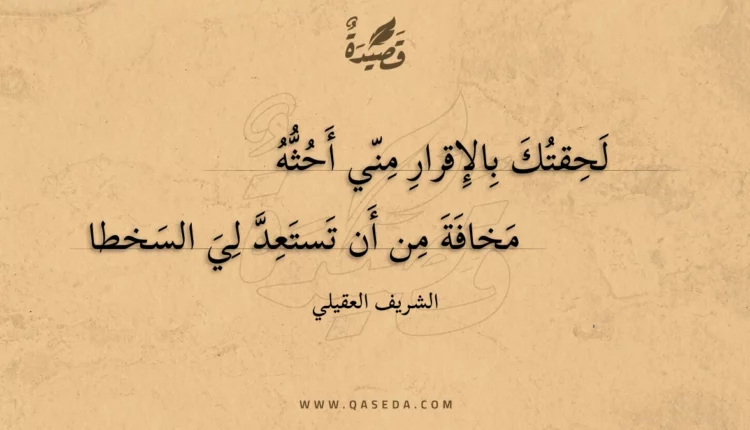 قَصِيدَةٌ
لَحِقتُكَ بِالإِقرارِ مِنّي أَحُثُّهُ
مَخافَةَ مِن أَن تَستَعِدَّ لِيَ السَخطا
الشريف العقيلي
WWW.QASEDA.COM